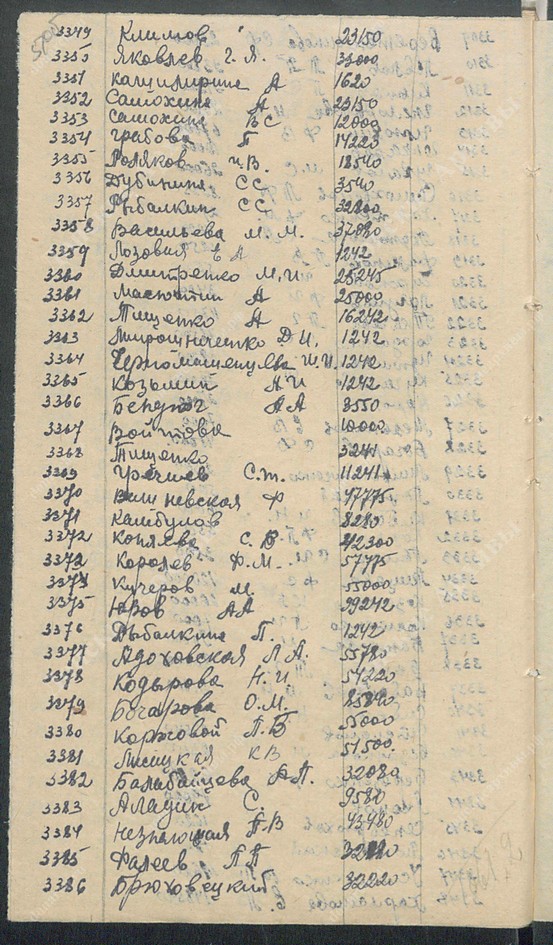 3349 Климов 23150
3350 Яковлев Г. Я. 33000
3351 Кашимирина А 1620
3352 Самохина А 23150
3353 Самохина ВС 12000
3354 Грабова Б 14220
3355 Поляков И.В. 18540
3356 Дубинина СС 3540
3357 Рыбалкин СС 32800
3358 Васильева М. М. 37080
3359 Лозовия Е А 1242
3360 Дмитренко М.И 25245
3361 Масютин А 25000
3362 Тищенко А 16242
3363 Мирошниченко Д И. 1242
3364 И.И. 1242
3365 Козьмин А И 1242
3366 А А 8550
3367 Войтова 10000
3368 Тищенко 3241
3369 С.т. 11241
3370 Вишневская Ф 47775
3371 Камбулов 8280
3372 Коняева С. В. 42300
3373 Королев Ф.М. 57775
3374 Кучеров М. 55000
3375 Юзов АА 29242
3376 Рыбалкина П. 1242
3377 Адоховская Л А. 55780
3378 Кодырова Н. И 54220
3379 Бочарова О.М. 8540
3380 Корховой П.Б 55000
3381 Лисицкая КВ 51500.
3382 Балабайцева А.П. 32080
3383 Аладин С. 9580
3384 Незнающая П.В 43480
3385 Фалеев П П 32
3386 Брюховецкий 32220